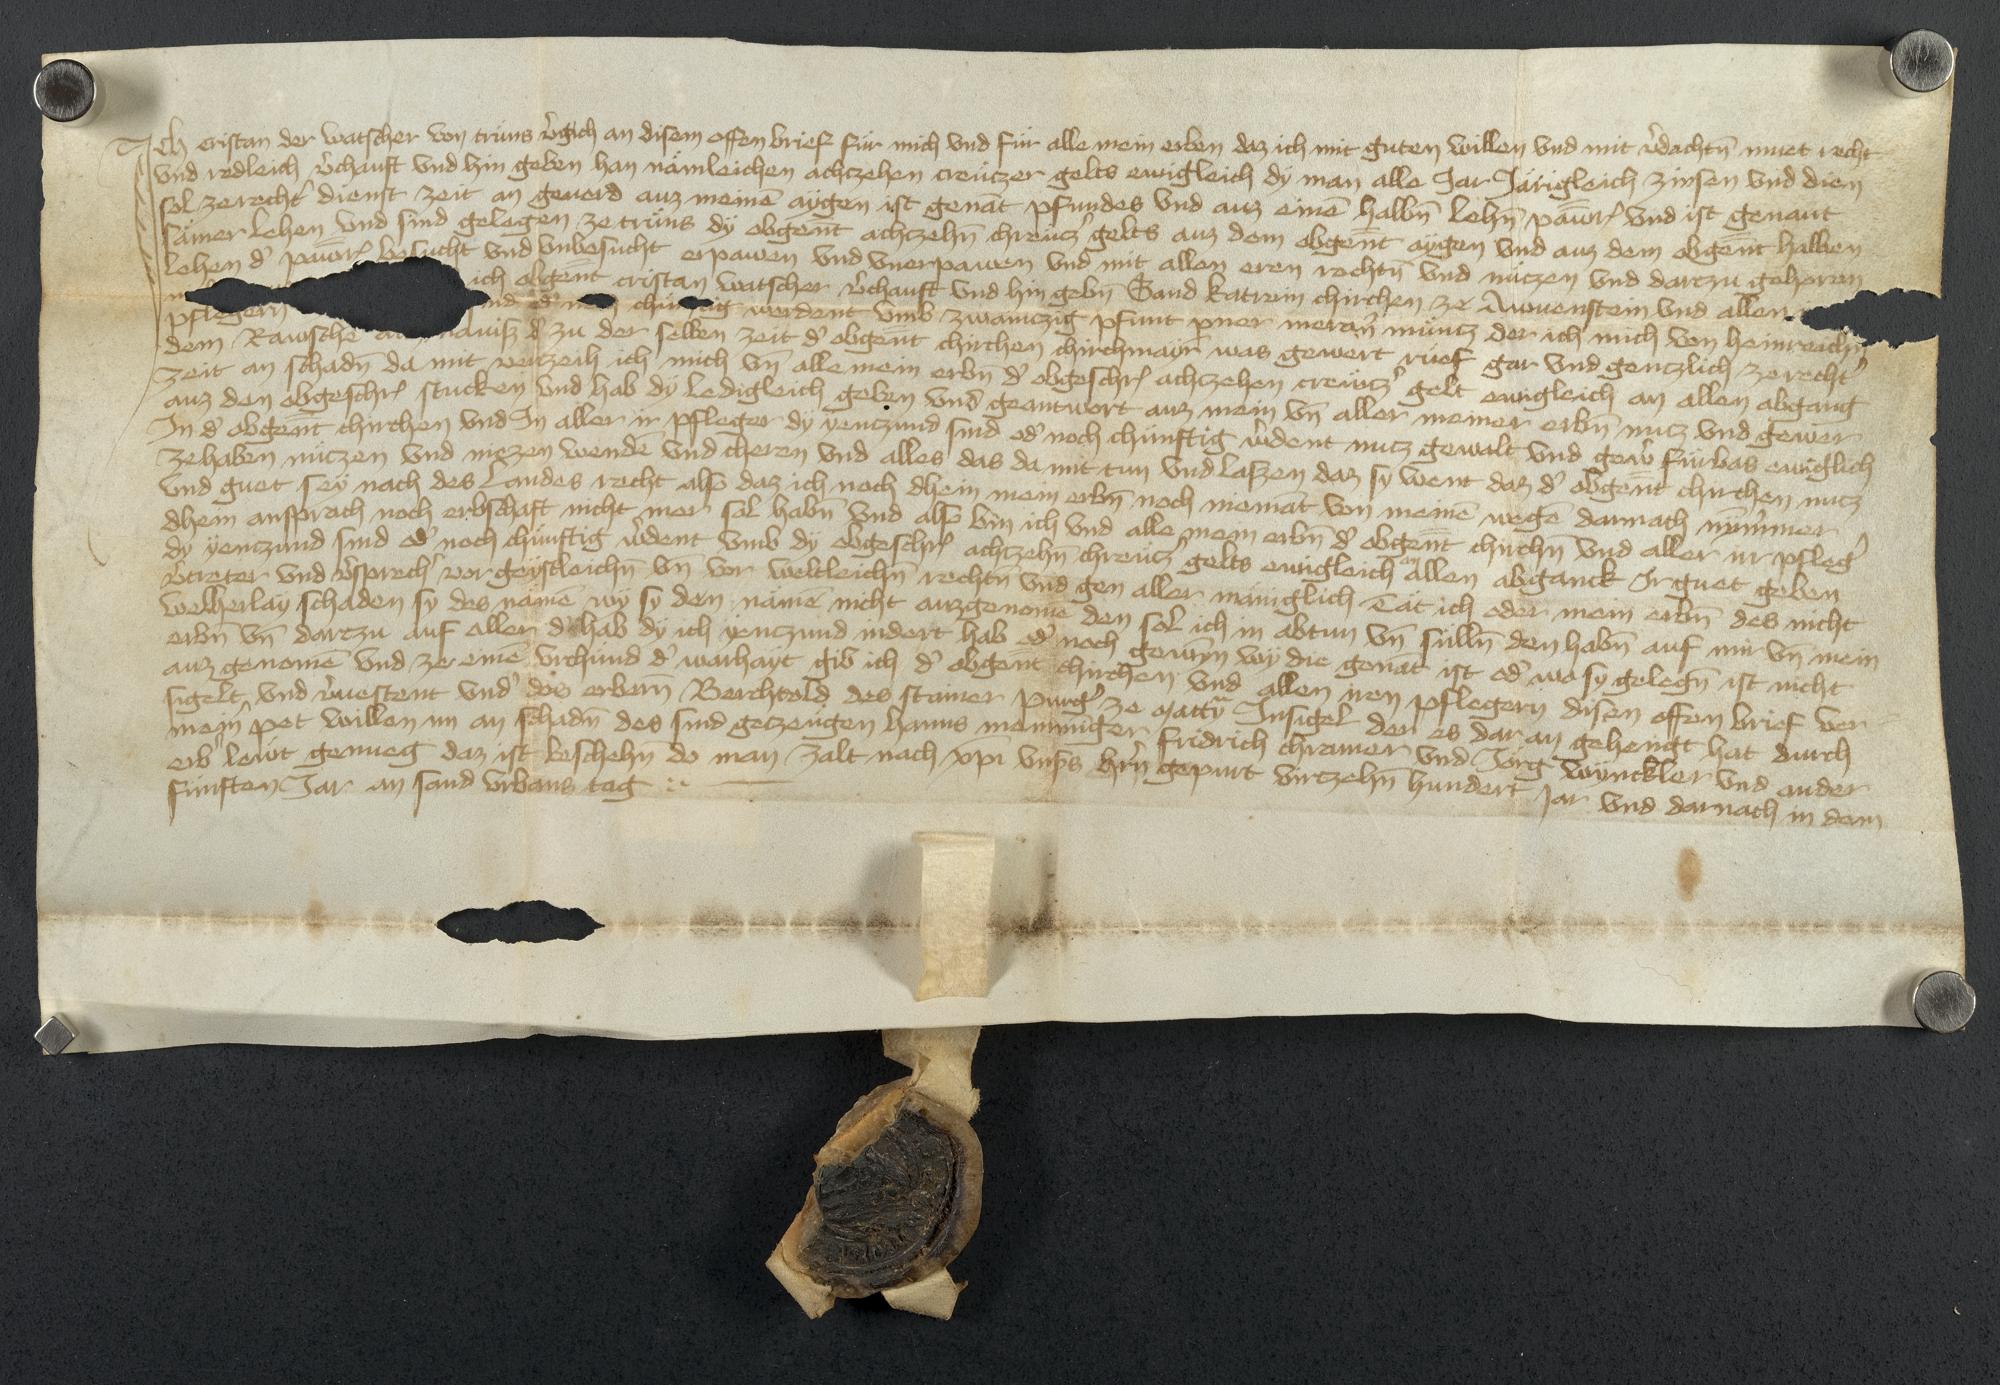 Ich cristan der watscher von trüns v̉gich an disem offen brief für mich vnd für alle mein erben daz ich mit guten willen vnd mit v̉dachtn̄ muet recht
vnd redleich v̉chauft vnd hin geben han nämleichen achczehen creüczer gelts ewigleich dy man alle Jar Järigleich zinsen vnd dien
sol ze recht̉ dienst zeit an geuerd auz meinē aygen ist genāt pfundes vnd auz einē halbn̄ lehn̄ vnd ist genant
sämer lehen vnd sind gelegen ze trüns dy obgen̄t achczehn̄ chreücz̉ gelts auz dem obgen̄t aygen vnd auz dem obgen̄t halben
lehen d̉ besucht vnd vnbesucht erpawen vnd vnerpawen vnd mit allen eren rechtn̄ vnd nüczen vnd darczu gehoren
ich obgen̄t cristan watscher v̉chauft vnd hin gebn̄ Sand Katrein chirchen ze Awuenstein vnd allen
pflegern chünftig werdent vmb zwainczig pfunt pner meran̉ müncz der ich mich von heinreichn̄
dem Rawsche zu der selben zeit d̉ obgen̄t chirchen chirchmayr̉ was gewert rüef gar vnd genczlich ze recht̉
zeit an schadn̄ da mit verzeih ich mich vn̄ alle mein erbn̄ d̉ obgeschr̉ achczehen creücz̉ gelt ewigleich an allen abgang
auz den obgeschr̉ stucken vnd hab dy ledigleich geben vnd geantwort auz mein vn̄ aller meiner erbn̄ nucz vnd gewer
In d̉ obgen̄t chirchen vnd In aller ir pfleger dy yenczund sind od̉ noch chünftig w̉dent nucz gewalt vnd gew̉ fürbas ewiglich
ze haben nüczen vnd niezen wenden vnd cheren vnd alles das da mit tun vnd laszen daz sy went daz d̉ obgen̄t chirchen nucz
vnd guet sey nach des Landes recht also daz ich noch dhein mein erbn̄ noch niemāt von meinē wegē darnach nymmer
dhein ansprach noch erbschaft nicht mer sol habn̄ vnd also bin ich vnd alle mein erbn̄ d̉ obgen̄t chirchn̄ vnd aller ir pfleg̉
dy yenczund sind od̉ noch chünftig w̉dent vmb dy obgeschr̉ achczehn̄ chreücz̉ gelts ewigleich an allen abganck Ir guet geben
v̉treter vnd v̉sprech̉ vor geystleichn̄ vn̄ vor weltleichn̄ rechtn̄ vnd gen aller mäniglich Tät ich oder mein erbn̄ des nicht
welherlay schaden sy des nämē wy sy den nämē nicht auzgenomē den sol ich in abtun vn̄ sülln̄ den habn̄ auf mir vn̄ mein
erbn̄ vn̄ darczu auf aller d̉ hab dy ich yenczund indert hab od̉ noch gewyn wy die genāt ist od̉ wo sy gelegn̄ ist nicht
auz genomē vnd ze einē vrchünd d̉ warhayt gib ich d̉ obgen̄t chirchen vnd allen iren pflegern disen offen brief ver
sigelt vnd v̉uestent vnd̉ des erbern̄ Berchtold des stainer purg̉ ze Insigel der es dar an gehengt hat durch
mein̉ pet willen im an schadn̄ des sind geczeugen hanns memminger fridrich chramer vnd Jörg wynckler vnd ander
erb̉ lewt genueg daz ist beschehn do man zalt nach xpi vnsers hr̄n gepurt virczehn̄ hundert Jar vnd darnach in dem
fünften Jar an sand vrbans tag